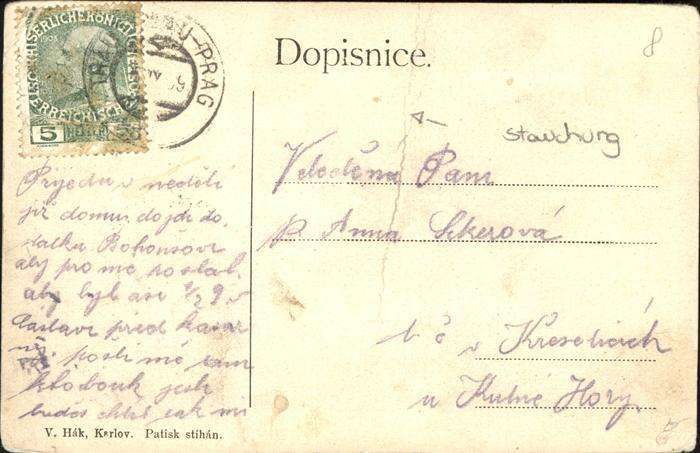 KAISERLICHE KÖNIGL
ÖSTERREICHISCHE
5
PRAG
Dopisnice.
8
stauchung
Velectěná Paní
p. Anna Sekerová
v Kreseticích
u Kutné Hory
Přijedu v neděli
již domu dojdi do
statku
aby pro mě poslal
aby byl asi 1/2 9 v
před
pošli mě tam
klobouk jestli
budeš chtít tak mi
V. Hák, Karlov. Patisk stíhán.